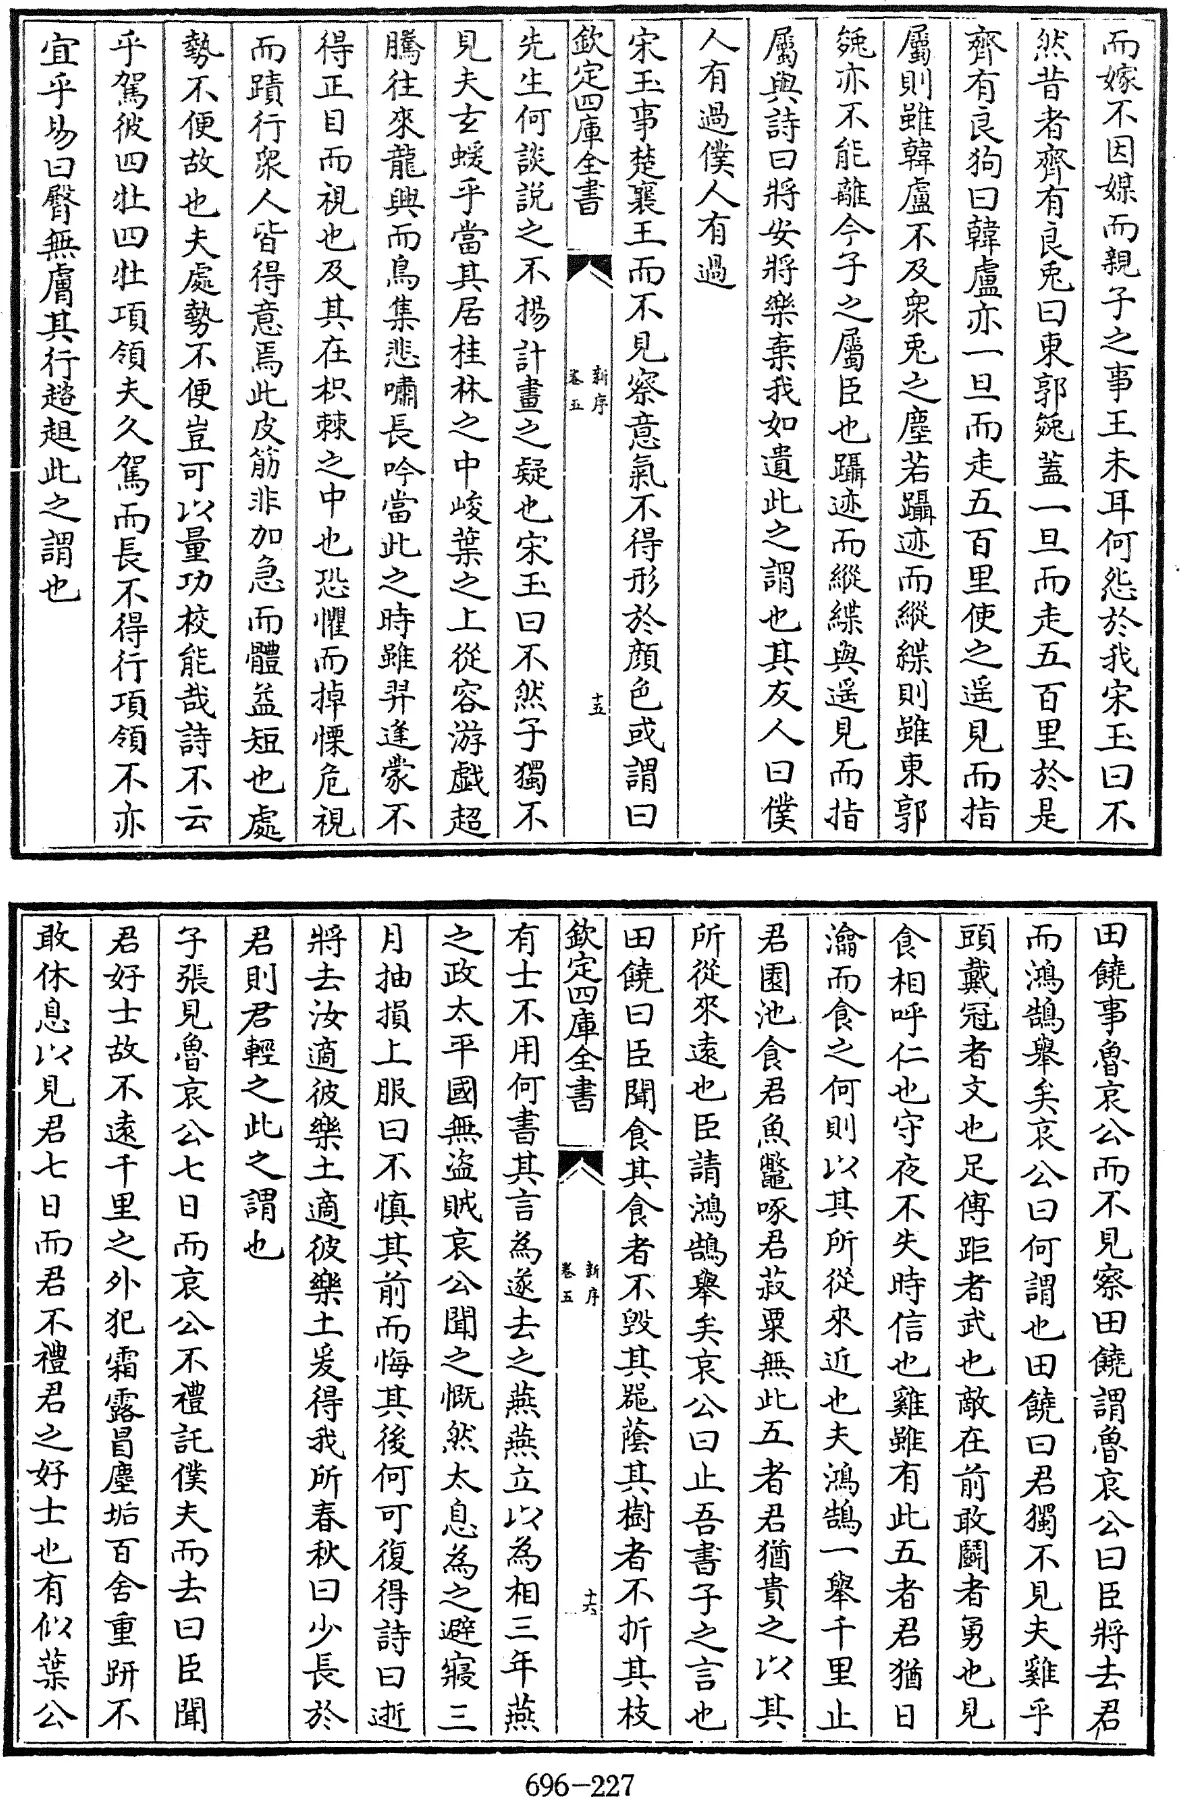 而嫁不因媒而親子之事王未耳何怨於我宋玉曰不
然昔者齊有良兎曰東郭㕙蓋一旦而走五百里於是
齊有良狗曰韓盧亦一旦而走五百里使之遥見而指
屬則雖韓盧不及衆兎之塵若躡迹而縱緤則雖東郭
㕙亦不能離今子之屬臣也躡迹而縱緤與遥見而指
屬與詩曰將安將樂棄我如遺此之謂也其友人曰僕
人有過僕人有過
宋玉事楚襄王而不見察意氣不得形於顔色或謂曰
欽定四庫全書
新序
卷五
十五
先生何談說之不揚計畫之疑也宋玉曰不然子獨不
見夫玄蝯乎當其居桂林之中峻葉之上從容游戲超
騰往來龍興而鳥集悲嘯長吟當此之時雖羿逢蒙不
得正目而視也及其在枳棘之中也恐懼而掉慄危視
而蹟行衆人皆得意焉此皮筋非加急而體益短也處
勢不便故也夫處勢不便豈可以量功校能哉詩不云
乎駕彼四牡四牡項領夫久駕而長不得行項領不亦
宜乎易曰臀無膚其行趦趄此之謂也
田饒事魯哀公而不見察田饒謂魯哀公曰臣將去君
而鴻鵠舉矣哀公曰何謂也田饒曰君獨不見夫雞乎
頭戴冠者文也足傅距者武也敵在前敢鬭者勇也見
食相呼仁也守夜不失時信也雞雖有此五者君猶日
瀹而食之何則以其所從來近也夫鴻鵠一舉千里止
君園池食君魚鼈啄君菽粟無此五者君猶貴之以其
所從來遠也臣請鴻鵠舉矣哀公曰止吾書子之言也
田饒曰臣聞食其食者不毁其器蔭其樹者不折其枝
欽定四庫全書
新序
卷五
十六
有士不用何書其言為遂去之燕燕立以為相三年燕
之政太平國無盗賊哀公聞之慨然太息為之避寢三
月抽損上服曰不慎其前而悔其後何可復得詩曰逝
將去汝適彼樂土適彼樂土爰得我所春秋曰少長於
君則君輕之此之謂也
子張見魯哀公七日而哀公不禮託僕夫而去曰臣聞
君好士故不遠千里之外犯霜露冒塵垢百舍重趼不
敢休息以見君七日而君不禮君之好士也有似葉公
696-227